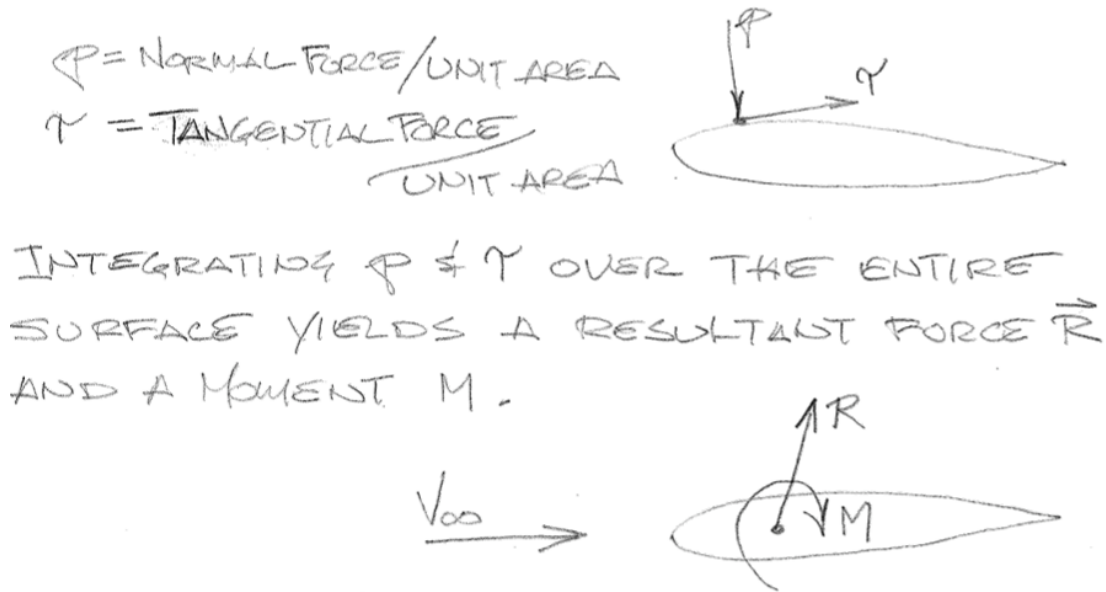 p = NORMAL FORCE/UNIT AREA
p
τ
τ = TANGENTIAL FORCE/
UNIT AREA
INTEGRATING p & τ OVER THE ENTIRE
SURFACE YIELDS A RESULTANT FORCE R⃗
AND A MOMENT M.
R
V∞
M